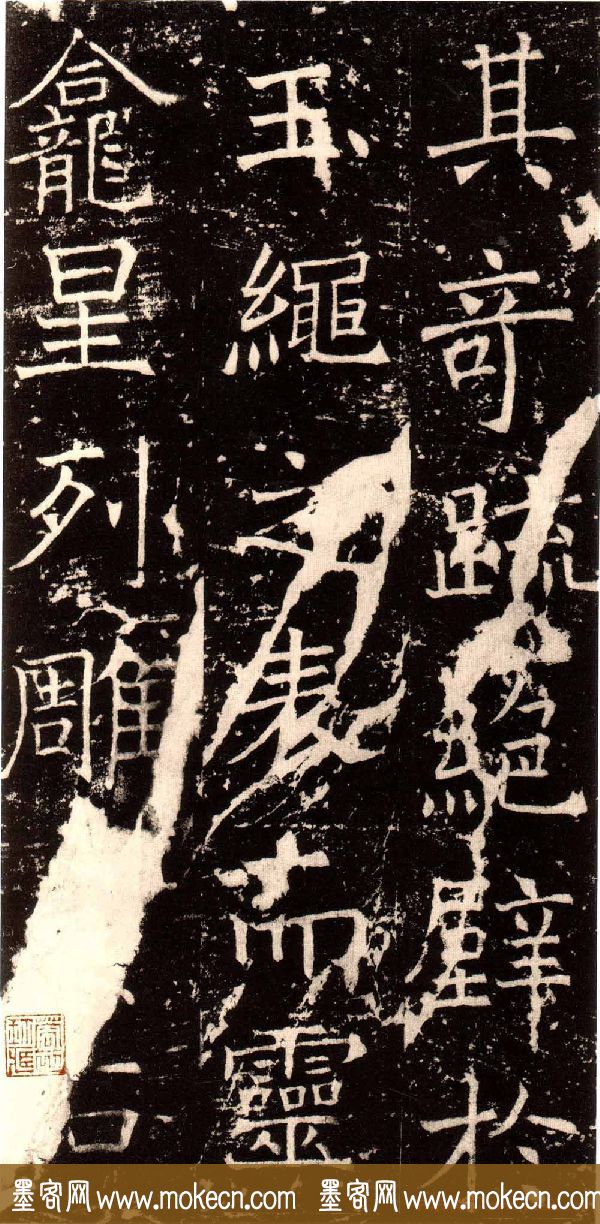 其奇疏絕壁於
玉繩之表而靈
龕星列雕
石
墨客网 www.mokecn.com 墨客网 www.mokecn.com